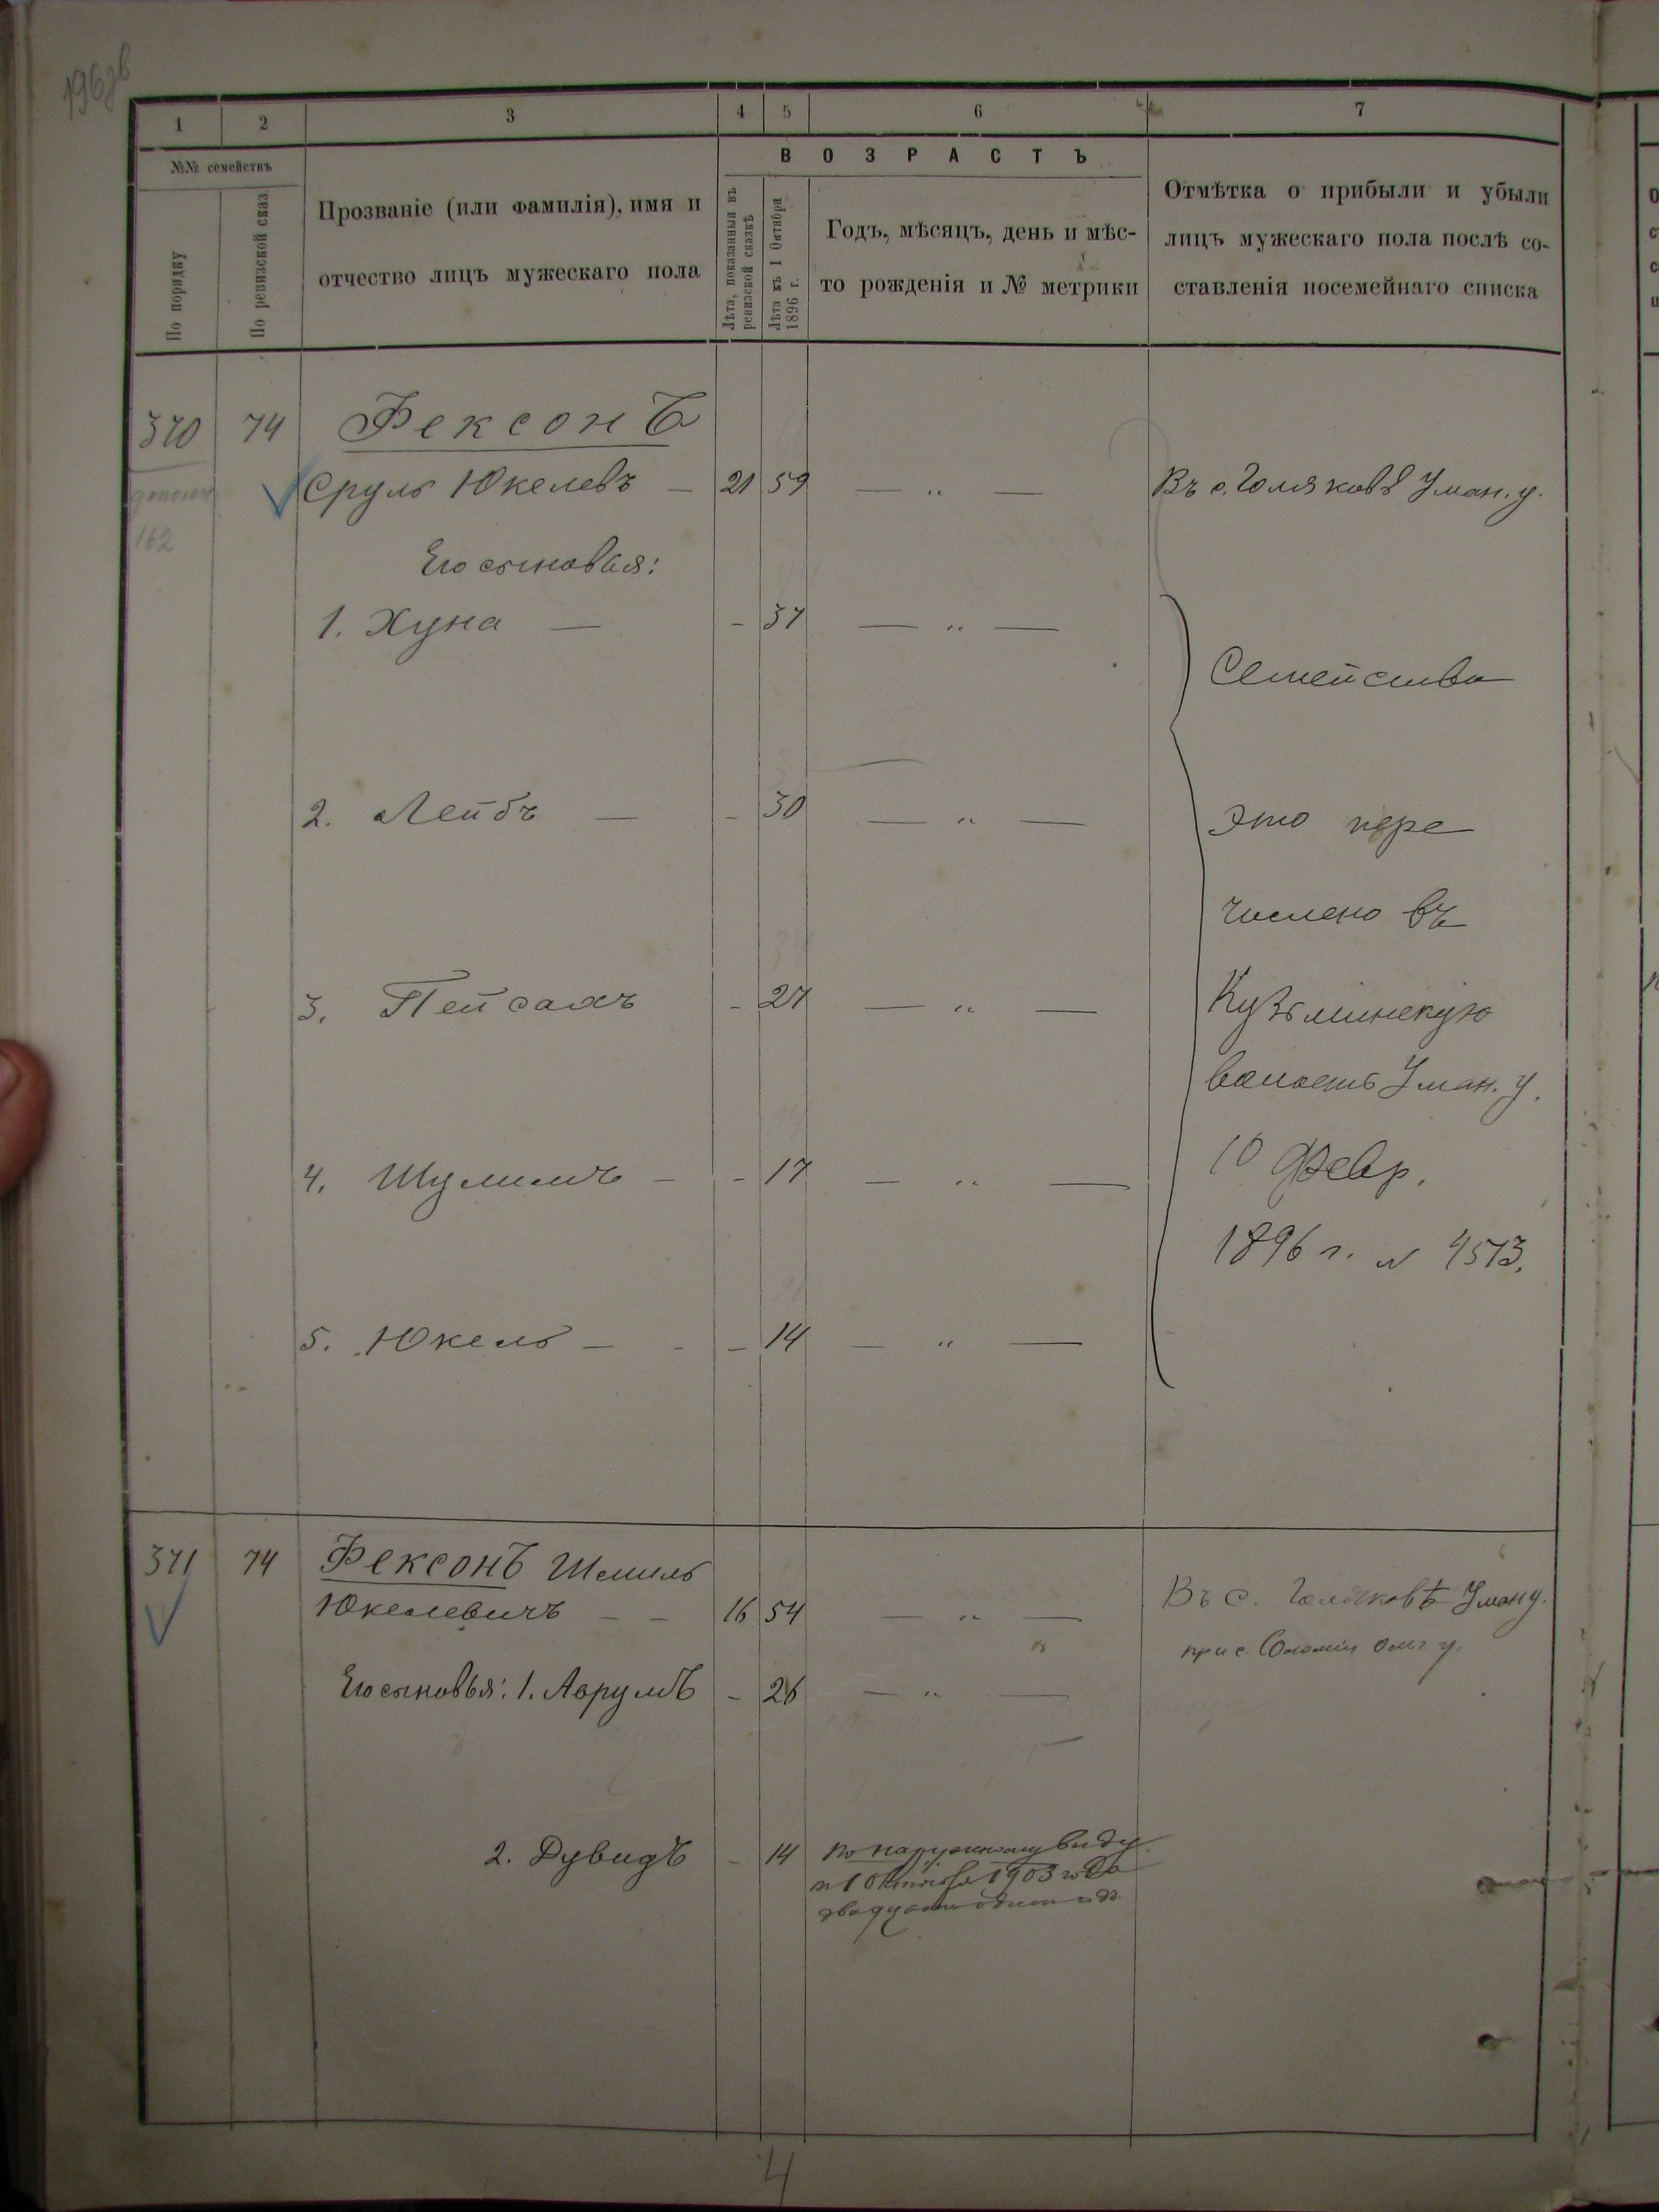 1 2 3 4 5 6 7
№№ семействъ
По порядку
По ревизской сказ
Прозваніе (или фамилія), имя и
отчество лицъ мужескаго пола
ВОЗРАСТЪ
Лѣта, показанныя въ
ревизской сказкѣ
Лѣта къ 1 Октября
1896 г.
Годъ, мѣсяцъ, день и мѣс-
то рожденія и № метрики
Отмѣтка о прибыли и убыли
лицъ мужескаго пола послѣ со-
ставленія посемейнаго списка
370 74 Фексонъ
Сруль Юкелевъ — 21 59 — „ — Въ с. Голяковѣ Уман. у.
162
Его сыновья:
1. Хуна — - 37 — „ —
Семейство
2. Лейбъ — - 30 — „ —
это пере
числено въ
3. Пейсахъ - 27 — „ —
Кузьминскую
волость Уман. у.
4. Шулимъ - - 17 — „ —
10 Февр.
1896 г. № 4513.
5. Юкель - - - 14 — „ —
371 74 Фексонъ Шмиль
Юкелевичъ — — 16 54 — „ —
Въ с. Голяковѣ Уман у.
при с.
Его сыновья: 1. Аврумъ - 26 — „ —
2. Дувидъ - 14 по наружному виду
1 Октября 1903 года
двадцать одинъ г.
4